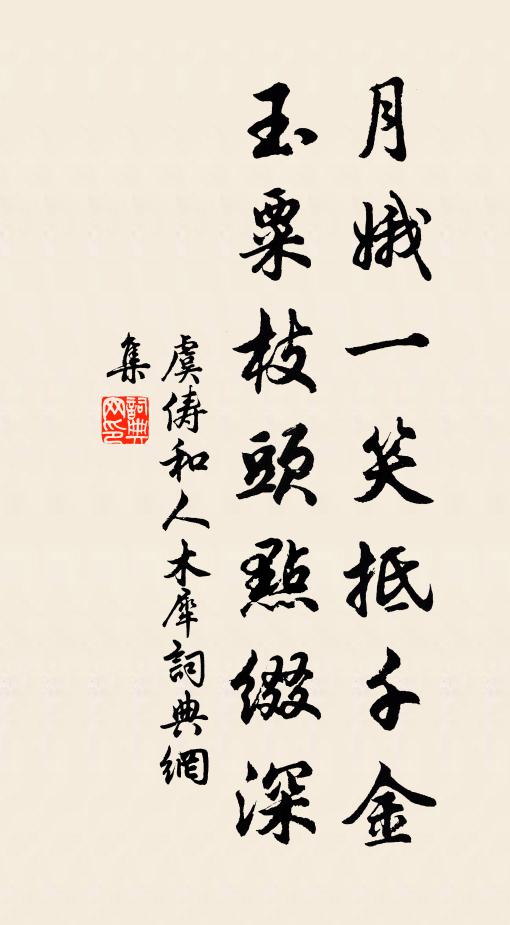 月娥一笑抵千金
玉粟枝頭點綴深
虞儔和人木犀詞典網
集
詞典
网印